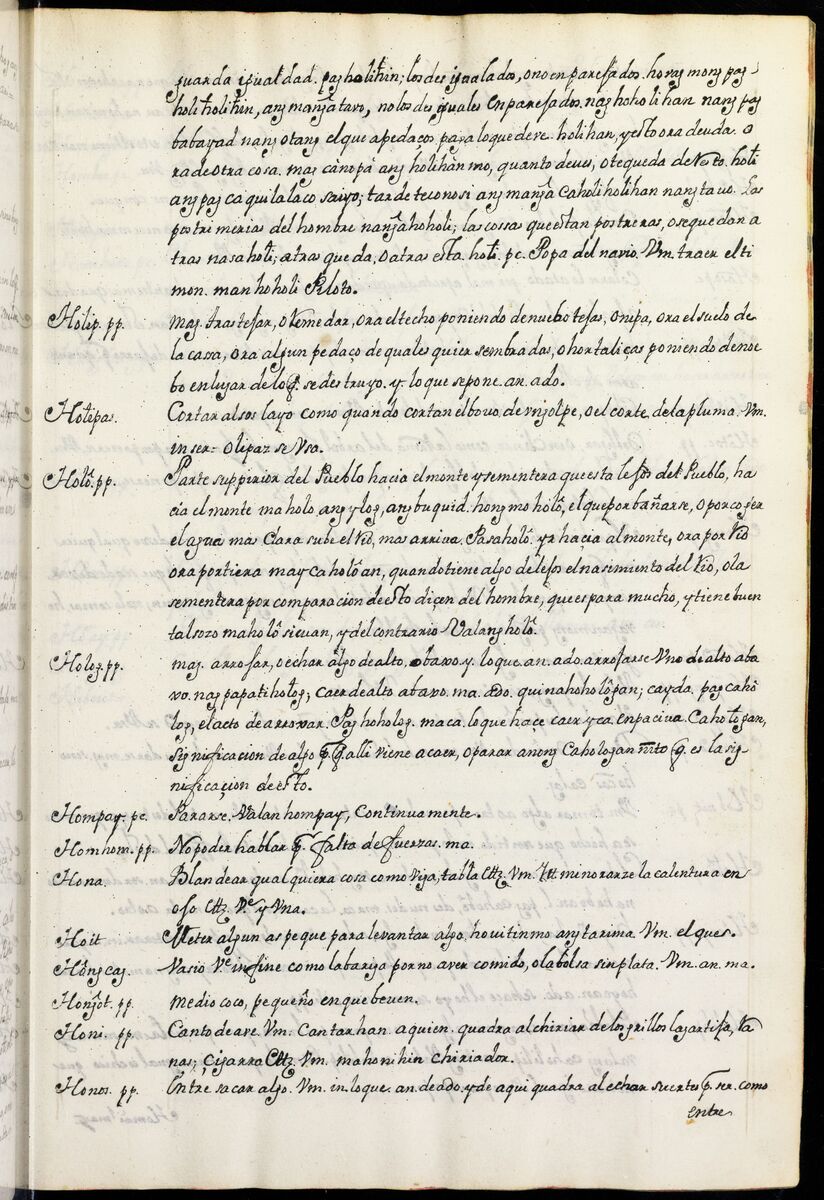 guarda igualdad. pag holihin; los desigualados, o no emparejados. horag mong pag-
holiholihin, ang mangã tavo, no los desiguales emparejados. nag hoholihan nang pag
babayad nang otang el que a pedaços paga lo que deve. holihan, y esto ora deuda. o
ra de otra cosa. mag cano pà ang holihàn mo, quanto deves, o te queda de resto. holi
ang pag caquilala co saiyo; tarde te conosi ang mangã caholiholihan nang tavo. Las
postrimerias del hombre nangã hoholi; las cossas que estan postreras, o se quedan a
tras nasa holi; atras queda, o atras esta. holi. pc. Popa del navio. Vm. traer el ti
mon. man hoholi Piloto.
Holip. pp. mag. trastejar, o remedar, ora el techo poniendo de nuebo tejas, o nipa, ora el suelo de
la cassa, ora algun pedaço de quales quier sembradas, o hortaliças poniendo de nue
bo en lugar de lo q̃. se destruyo. y. lo que se pone. an. ado.
Holipas. Cortar al soslayo como quando cortan el bovo de vn golpe, o el corte de la pluma. Vm.
in ser. Olipaz se Vsa.
Holô. pp. Parte suppirior del Pueblo hacia el monte y sementera que esta lejos del Pueblo, ha
cia el monte maholo, ang ylog, ang buquid. hong mo holô, el que por bañarse, o por coger
el agua mas clara sube el rio, mas arriva. Pasa holô. yr haçia al monte, ora por rio
ora por tiera may caholôan, quando tiene algo de lejos el nasimiento del rio, o la
sementera por comparacion de esto diçen del hombre, que es para mucho, y tiene buen
talsozo maholô sicuan, y del contrario Valang holô.
Holog. pp. mag. arrojar, o echar algo de alto, abaxo y. lo que. an. ado. arrojarse Vno de alto aba
xo. nag papatiholog; caer de alto abaxo. ma. ado. quinahohologan; cayda. pag cahô
log, el acto de arroxar. Pag hoholog. maca. lo que haçe caer y ca. en paciva. Cahologan,
significacion de algo p.q̃ alli viene a caer, o parar anong Cahologan nito q̃. es la sig-
nificaçion de esto.
Hompay. pc. Pararse. Valan hompay, Continuamente.
Homhom. pp. No poder hablar p.r falta de fuerzas. ma.
Hona. Blandear qualquiera cosa como viga, tabla Ettz. Vm. Ytt. minorarze la calentura en
ojo. Ettz. V.e y Vna.
Hoit Meter algun aspeque para levantar algo. hovitin mo ang tarima. Vm. el ques.
Hôngcag. Vasio V.e in fine como la bariga por no aver comido, o la bolsa sin plata. Vm. an. ma.
Hongôt. pp. medio coco, pequeño en que beuen.
Honi. pp. Canto de ave. Vm. Cantar han. a quien. quadra al chiriar de los grillos lagartija, ra
nas, çigarra Ettz. Vm. mahonihin chiriador.
Honos. pp. Entre sacar algo. Vm. in. lo que. an. de ado. y de aqui quadra al echar suertes p. ser. como
entre